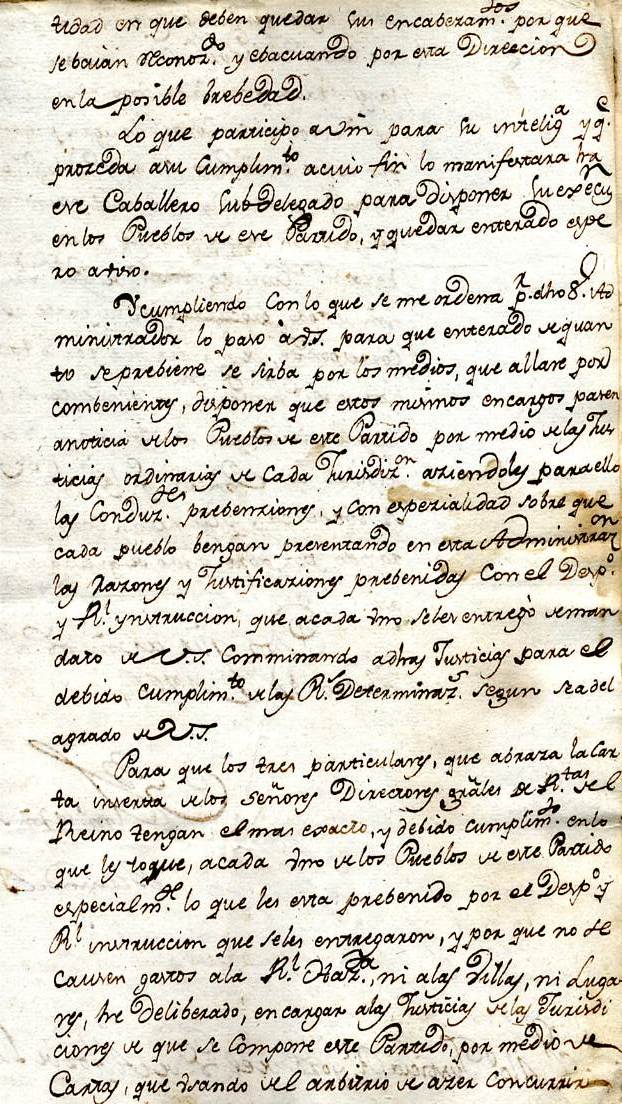 tidad en que deben quedar sus encabezam.tos por que
se baian reconoz.do y ebacuando por esta Direccion
en la posible brebedad.
Lo que participo a Vm para su intelig.a y q.e
proceda a su Cumplim.to a cuio fin lo manifestara
ese Caballero Subdelegado para disponer su execu
en los Pueblos de ese Partido, y quedar enterado espe
ro aviso.
Y cumpliendo Con lo que se me ordena p.r dho S.r Ad
ministrador lo paso à V.S. para que enterado de quan
to se prebiene se sirba por los medios, que allare por
combenientes, disponer que estos mismos encargos pasen
a noticia de los Pueblos de este Partido por medio de las Jus
ticias ordinarias de Cada Jurisdiz.on aziendoles para ello
las Conduz.tes prebenziones, y con espezialidad sobre que
cada pueblo bengan presentando en esta Administraz.on
las razones y Justificaziones prebenidas Con el Desp.o
y R.l ynstruccion, que a cada vno se les entregò de man
dato de V.S. Comminando a dhas Justicias para el
debido Cumplim.to de las R.s Determinaz.s segun sea del
agrado de V.S.
Para que los tres particulares, que abraza la Car
ta inserta de los Señores Directores grãles de R.tas de el
Reino tengan el mas exacto, y debido Cumplim.to en lo
que les toque, a cada vno de los Pueblos de este Partido
especialm.te lo que les esta prebenido por el Desp.o y
R.l instruccion que se les entregaron, y por que no se
Causen gastos a la R.l Haz.da, ni a las Villas, ni Luga
res, he Deliberado, encargar a las Justicias de las Jurisdi
ciones de que se Compone este Partido, por medio de
Cartas, que vsando de el arbitrio de azer Concurrir